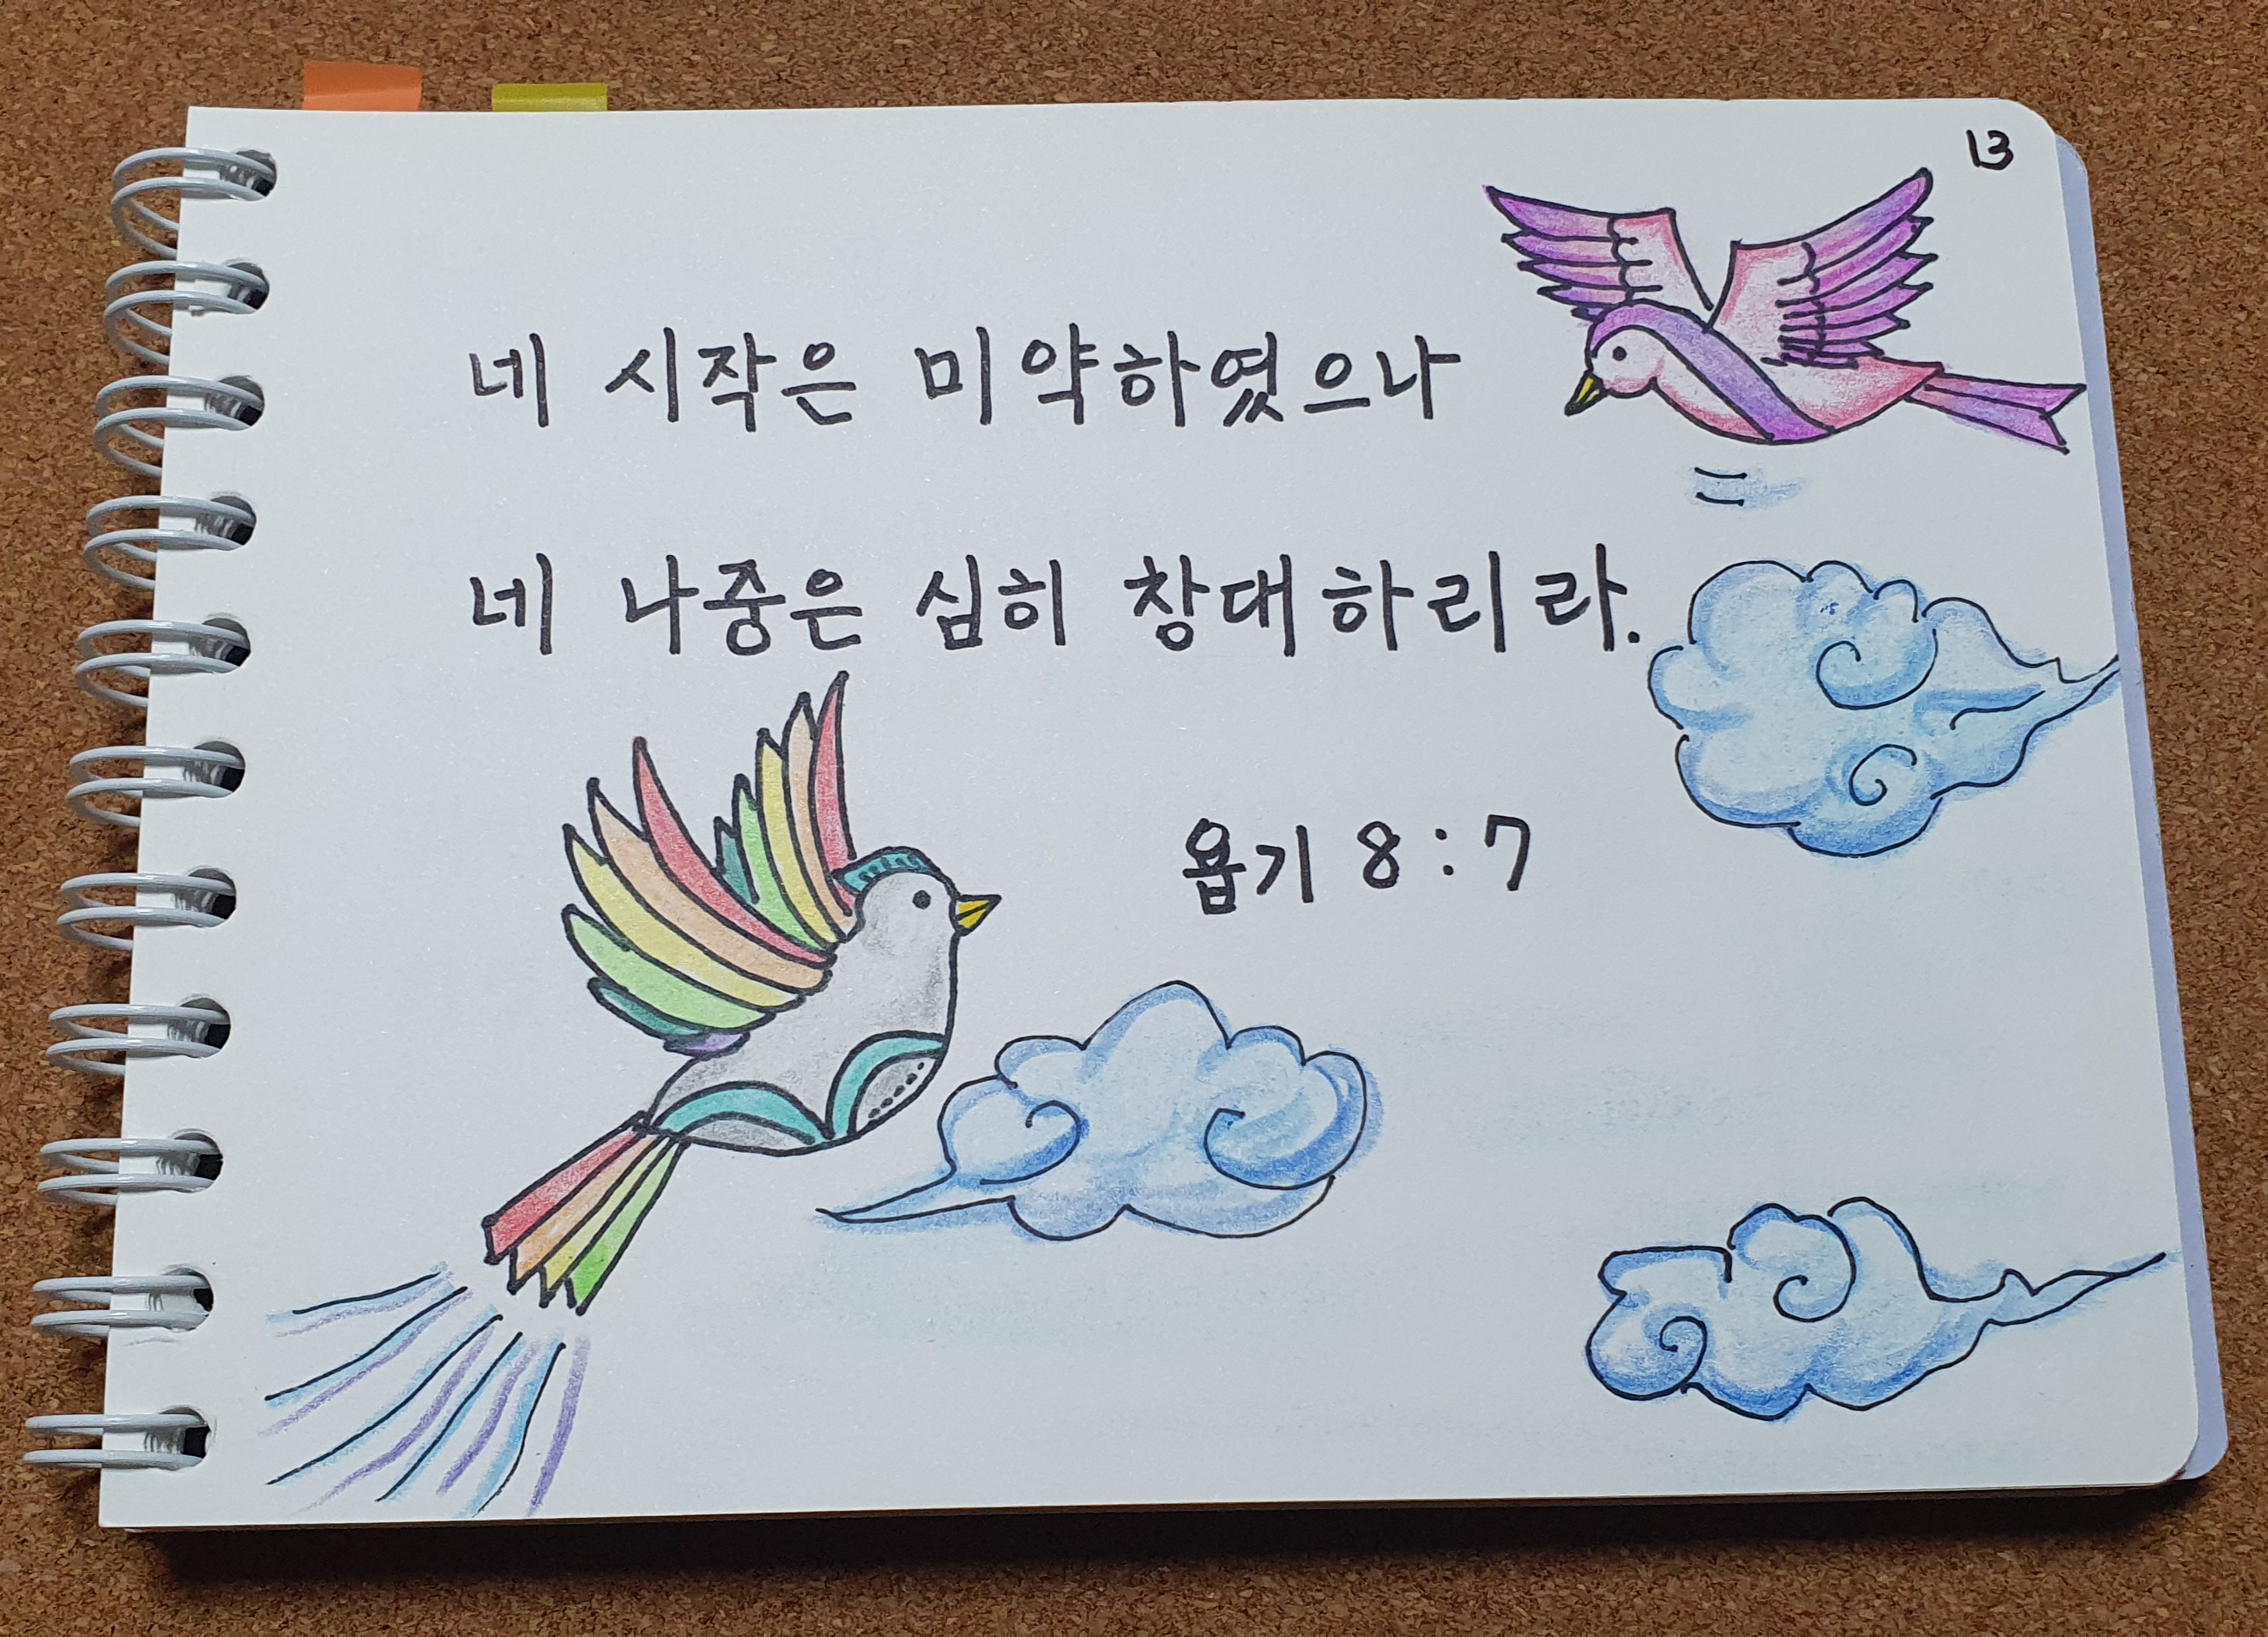 13
네 시작은 미약하였으나
네 나중은 심히 창대하리라.
욥기 8:7